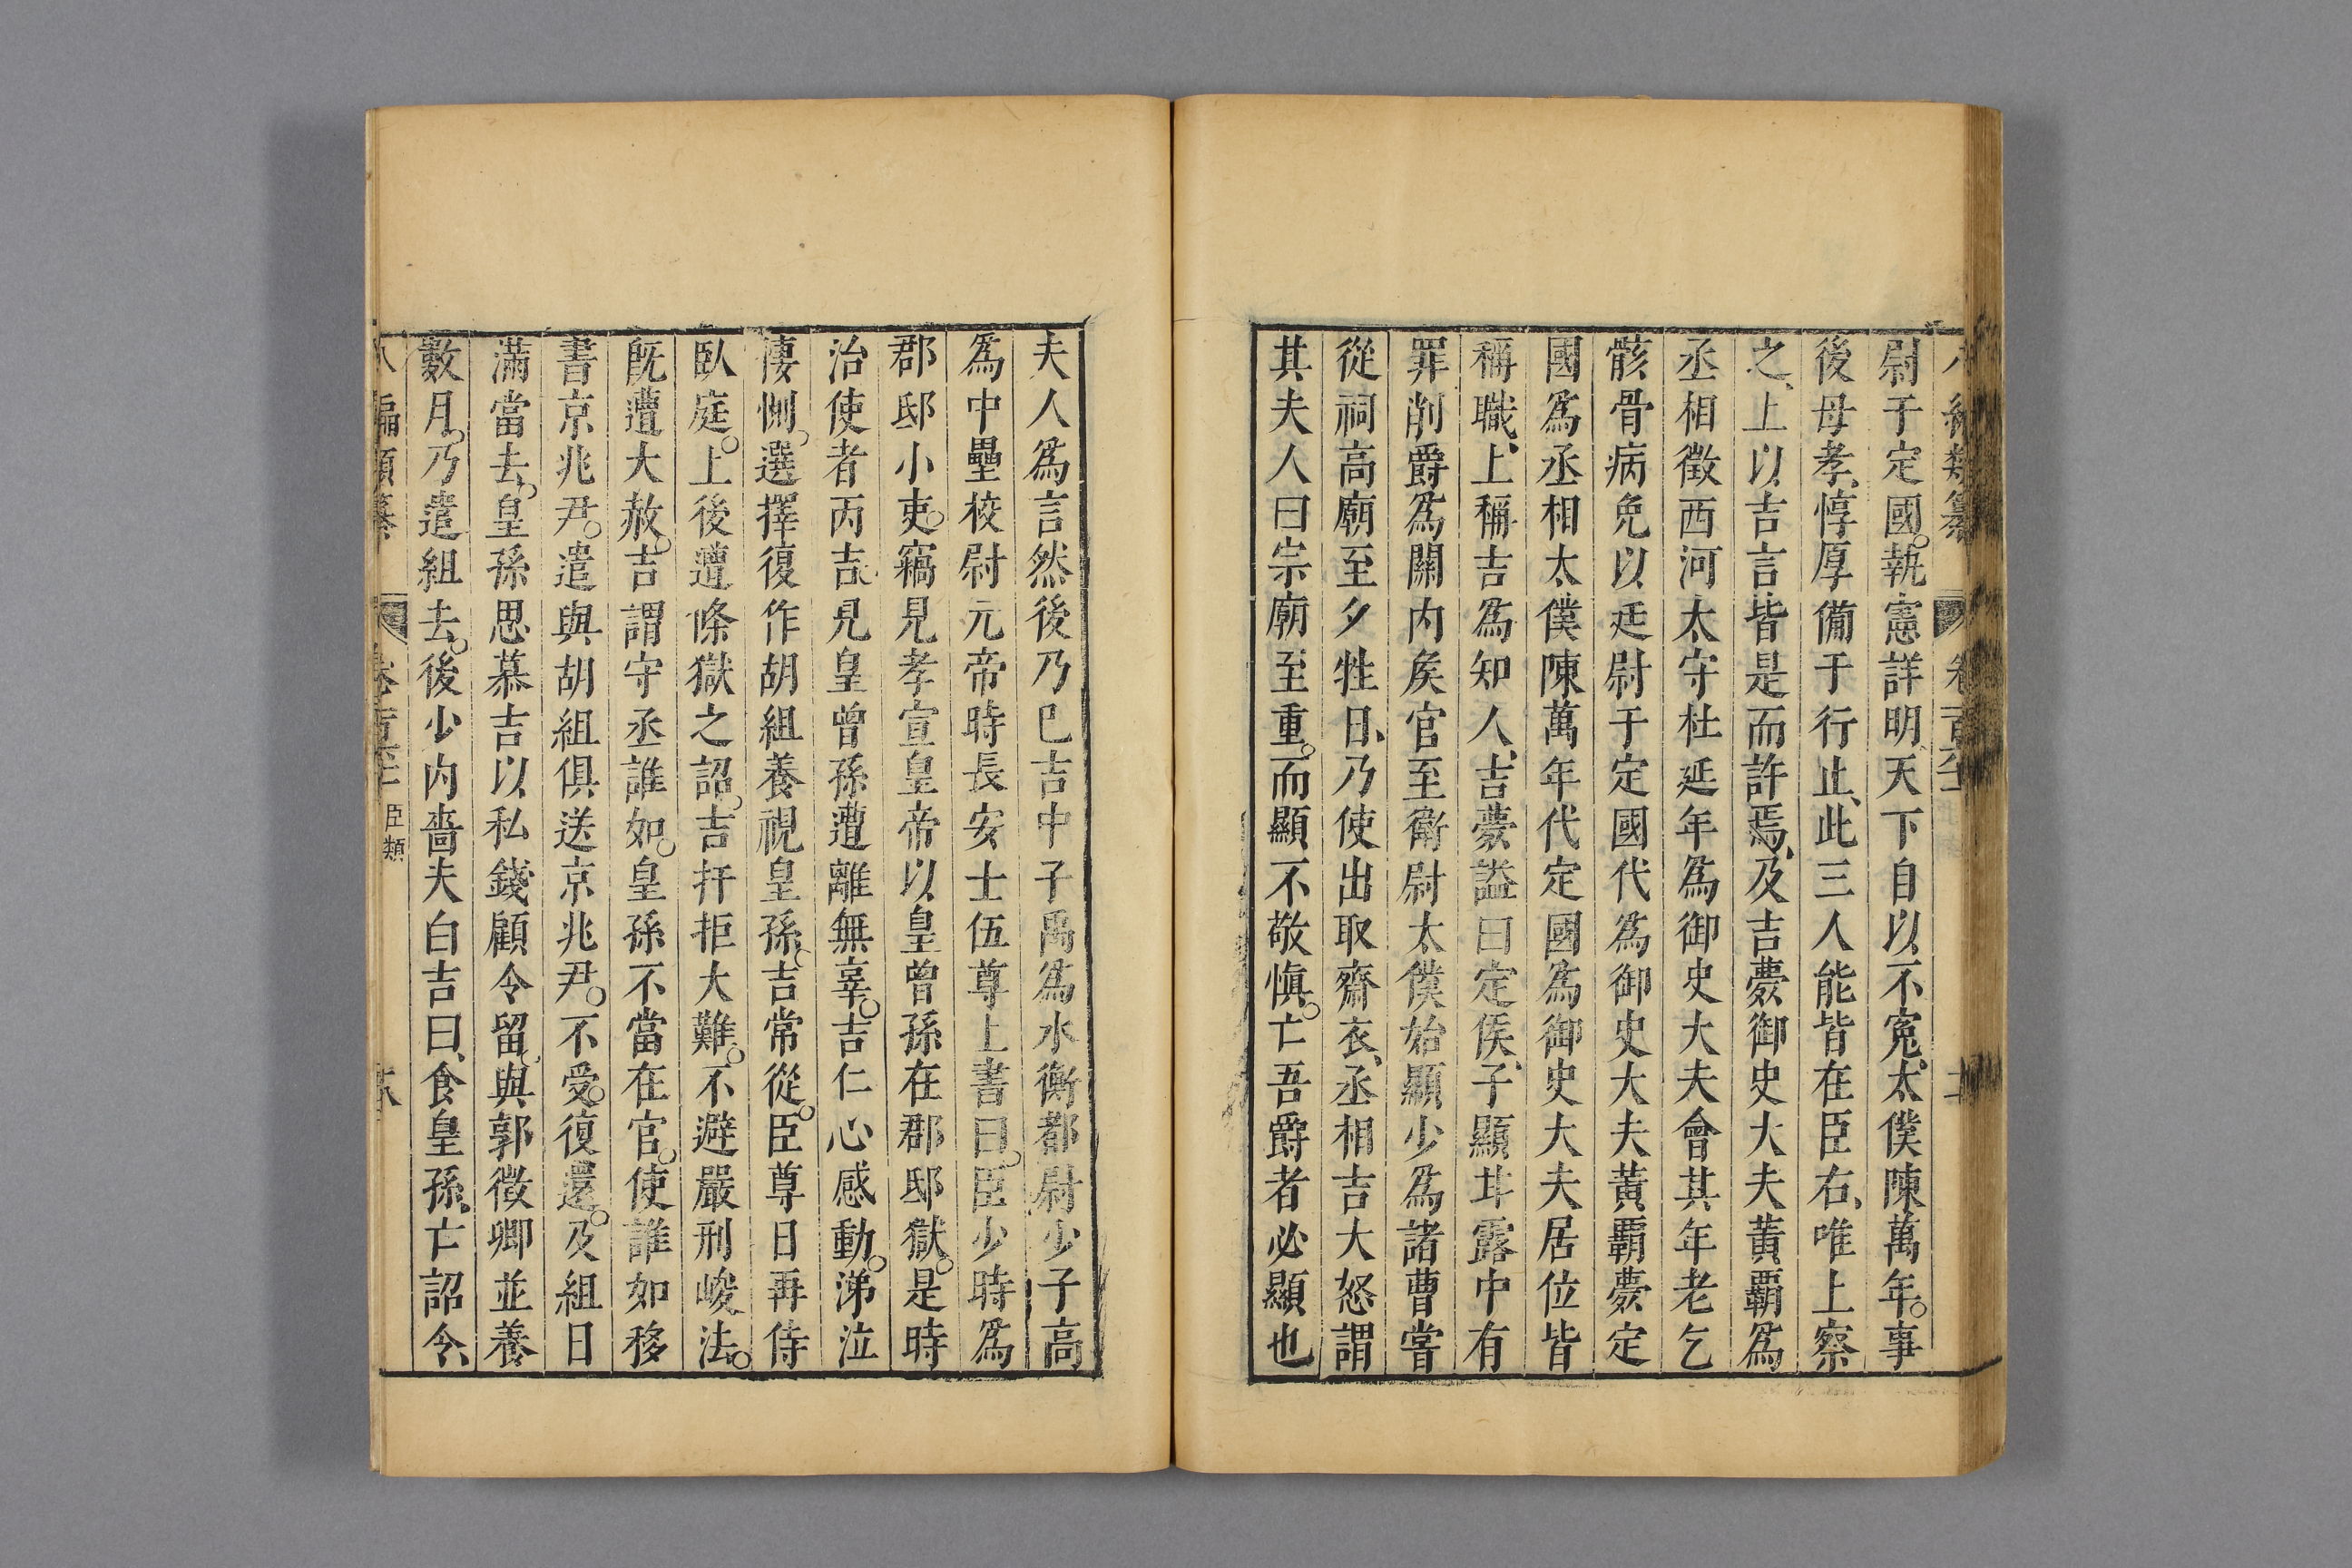 尉于定國。執憲詳明、天下自以不寃、太僕陳萬年。事
後母孝、惇厚備于行止、此三人能皆在臣右、唯上察
之、上以吉言皆是而許焉、及吉薨御史大夫黃覇爲
丞相徵西河太守杜延年爲御史大夫會其年老乞
骸骨病免以廷尉于定國代爲御史大夫黃覇薨定
國爲丞相太僕陳萬年代定國爲御史大夫居位皆
稱職、上稱吉爲知人、吉薨謚曰定侯、子顯甘露中有
罪削爵爲關内矦官至衛尉太僕始顯少爲諸曹嘗
從祠高廟至夕牲日、乃使出取齋衣、丞相吉大怒謂
其夫人曰宗廟至重。而顯不敬愼。亡吾爵者必顯也
夫人爲言然後乃已吉中子禹爲水衡都尉少子高
爲中壘校尉元帝時長安士伍尊上書曰。臣少時爲
郡邸小吏。竊見孝宣皇帝以皇曾孫在郡邸獄。是時
治使者丙吉、見皇曾孫遭離無辜。吉仁心感動。涕泣
悽惻。選擇復作胡組養視皇孫、吉常從。臣尊日再侍
臥庭。上後遭條獄之詔。吉扞拒大難。不避嚴刑峻法。
旣遭大赦。吉謂守丞誰如。皇孫不當在官。使誰如移
書京兆尹。遣與胡組俱送京兆尹。不受。復還。及組日
滿當去。皇孫思慕吉以私錢顧令留、與郭徵卿並養
數月。乃遣組去。後少内嗇夫白吉曰、食皇孫、亡詔令、
編類纂 卷百 臣類